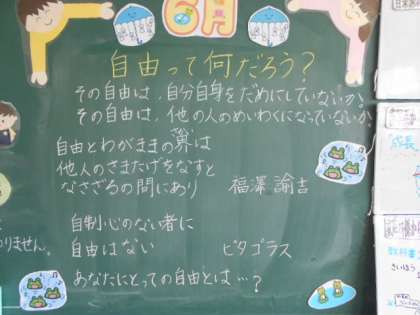 6月
自由って何だろう?
その自由は、自分自身をだめにしていないか
その自由は、他の人のめいわくになっていないか
自由とわがままの界は
他人のさまたげをなすと
なさざるの間にあり
福澤 諭吉
自制心のない者に
自由はない
ピタゴラス
あなたにとっての自由とは…?
りません。
成長